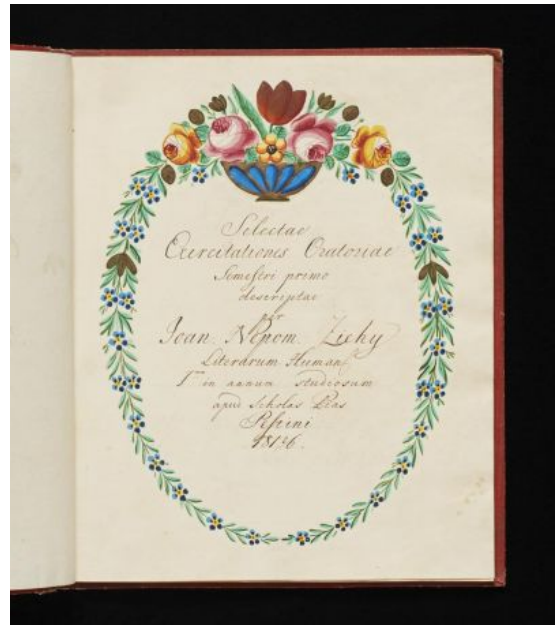 Selectae
Exercitationes Oratoriae
Semestri primo
descriptae
per
Joan. Nepom. Zichy
Literarum Human.
Iᵐ in annum studiosum
apud Scholas Pias
Pestini